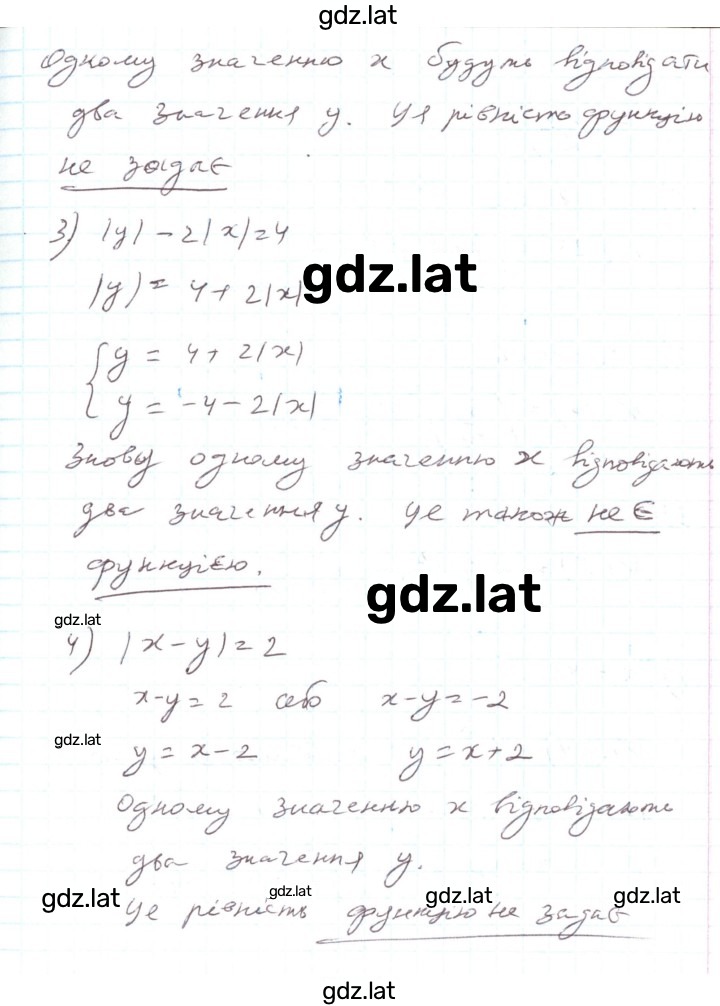 gdz.lat
Одному значенню x будуть відповідати
два значення y. Ця рівність функцію
не задає
3) |y| - 2|x| = 4
gdz.lat
|y| = 4 + 2|x|
{ y = 4 + 2|x|
y = -4 - 2|x|
Знову одному значенню x відповідають
два значення y. Це також не є
функцією.
gdz.lat
gdz.lat
4) |x - y| = 2
x - y = 2 або x - y = -2
gdz.lat
y = x - 2 y = x + 2
Одному значенню x відповідають
два значення y.
gdz.lat gdz.lat gdz.lat gdz.lat
Це рівність функцію не задає
gdz.lat